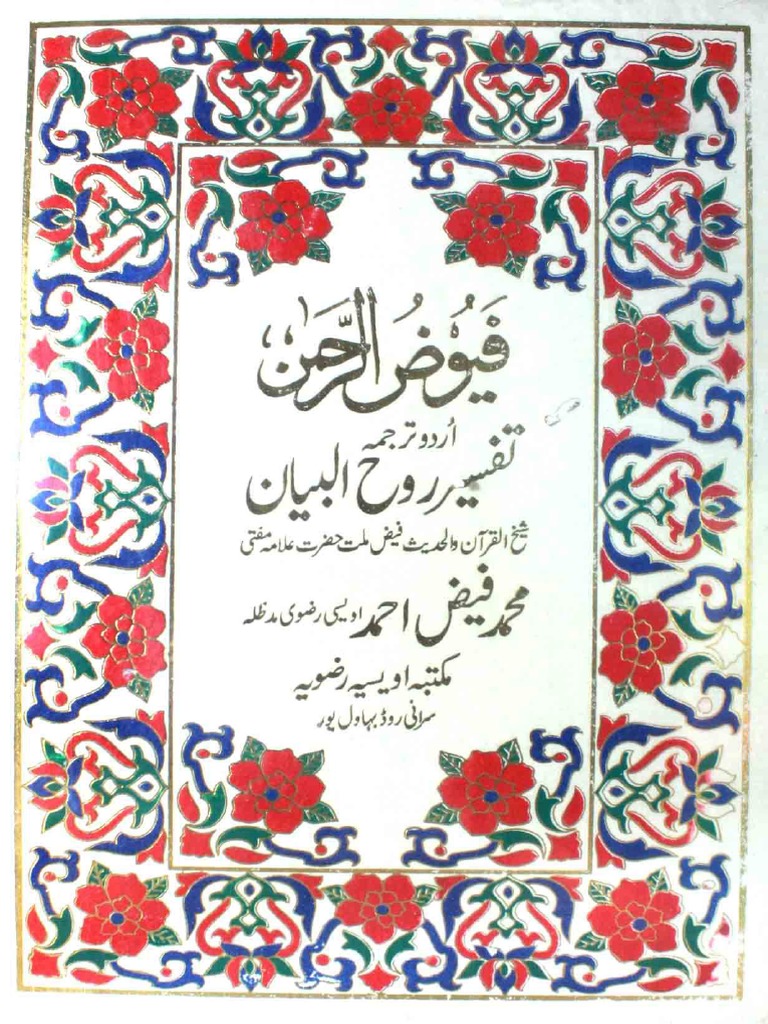 فیوض الرحمٰن
اُردو ترجمہ
تفسیر روح البیان
شیخ القرآن والحدیث فیض ملت حضرت علامہ مفتی
محمد فیض احمد اویسی رضوی مدظلہ
مکتبہ اویسیہ رضویہ
سرانی روڈ بہاول پور